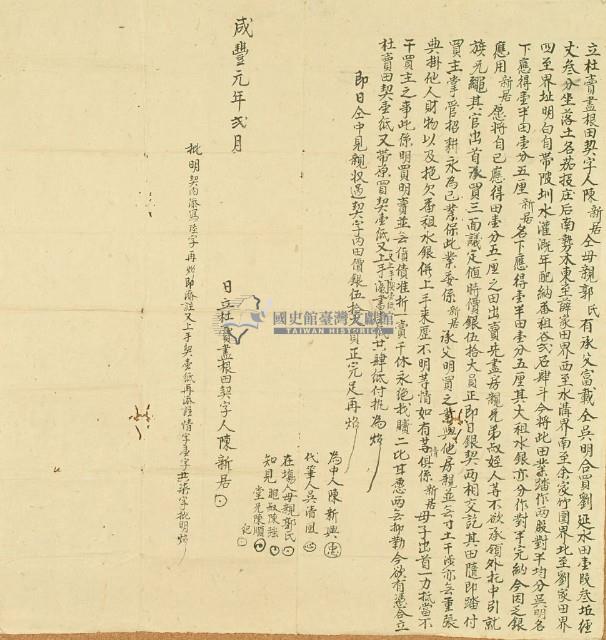 立杜賣盡根田契字人陳新居仝母親郭氏有承父富載仝吳明合買劉延水田壹段叁坵經
丈叁分坐落土名茄投庄后南勢木東至薛家田界西至水溝界南至余家竹圍界北至劉家田界
四至界址明白自帶陂圳水灌溉年配納番租谷弍石肆斗今將此田業踏作兩股對半均分吳明名
下應得壹半田壹分五厘新居名下應得壹半田壹分五厘其大租水銀亦分作對半完納今因乏銀
應用新居愿將自己應得田壹分五厘之田出賣先盡房親兄弟叔姪人等不欲承領外托中引就
族兄繩其官出首承買三面議定值時價銀伍拾大員正即日銀契兩相交訖其田隨即踏付
買主掌管招耕永為己業保此業委係新居承父明買之業與他房親並無寸土干涉亦無重張
典掛他人財物以及拖欠番租水銀併上手來歷不明等情如有等俱係新居母子出首一力抵當不
干買主之事此係明買明賣並無債債准折一賣千休永絕找贖二比甘愿兩無抑勒今欲有憑合立
杜賣田契壹紙又帶原買契壹紙又上手 共肆紙付执為炤
即日仝中見親收過契字內田價銀伍拾大員正完足再炤
為中人陳新興
代筆人吳清風
在場人母親郭氏
知見 叔陳強
堂兄陳順
日立杜賣盡根田契字人陳新居
咸豐元年弍月
批明契內添寫陸字再炤即添註又上手契壹紙再添註情字壹字共柒字批明炤
國史館臺灣文獻館
TAIWAN HISTORICA